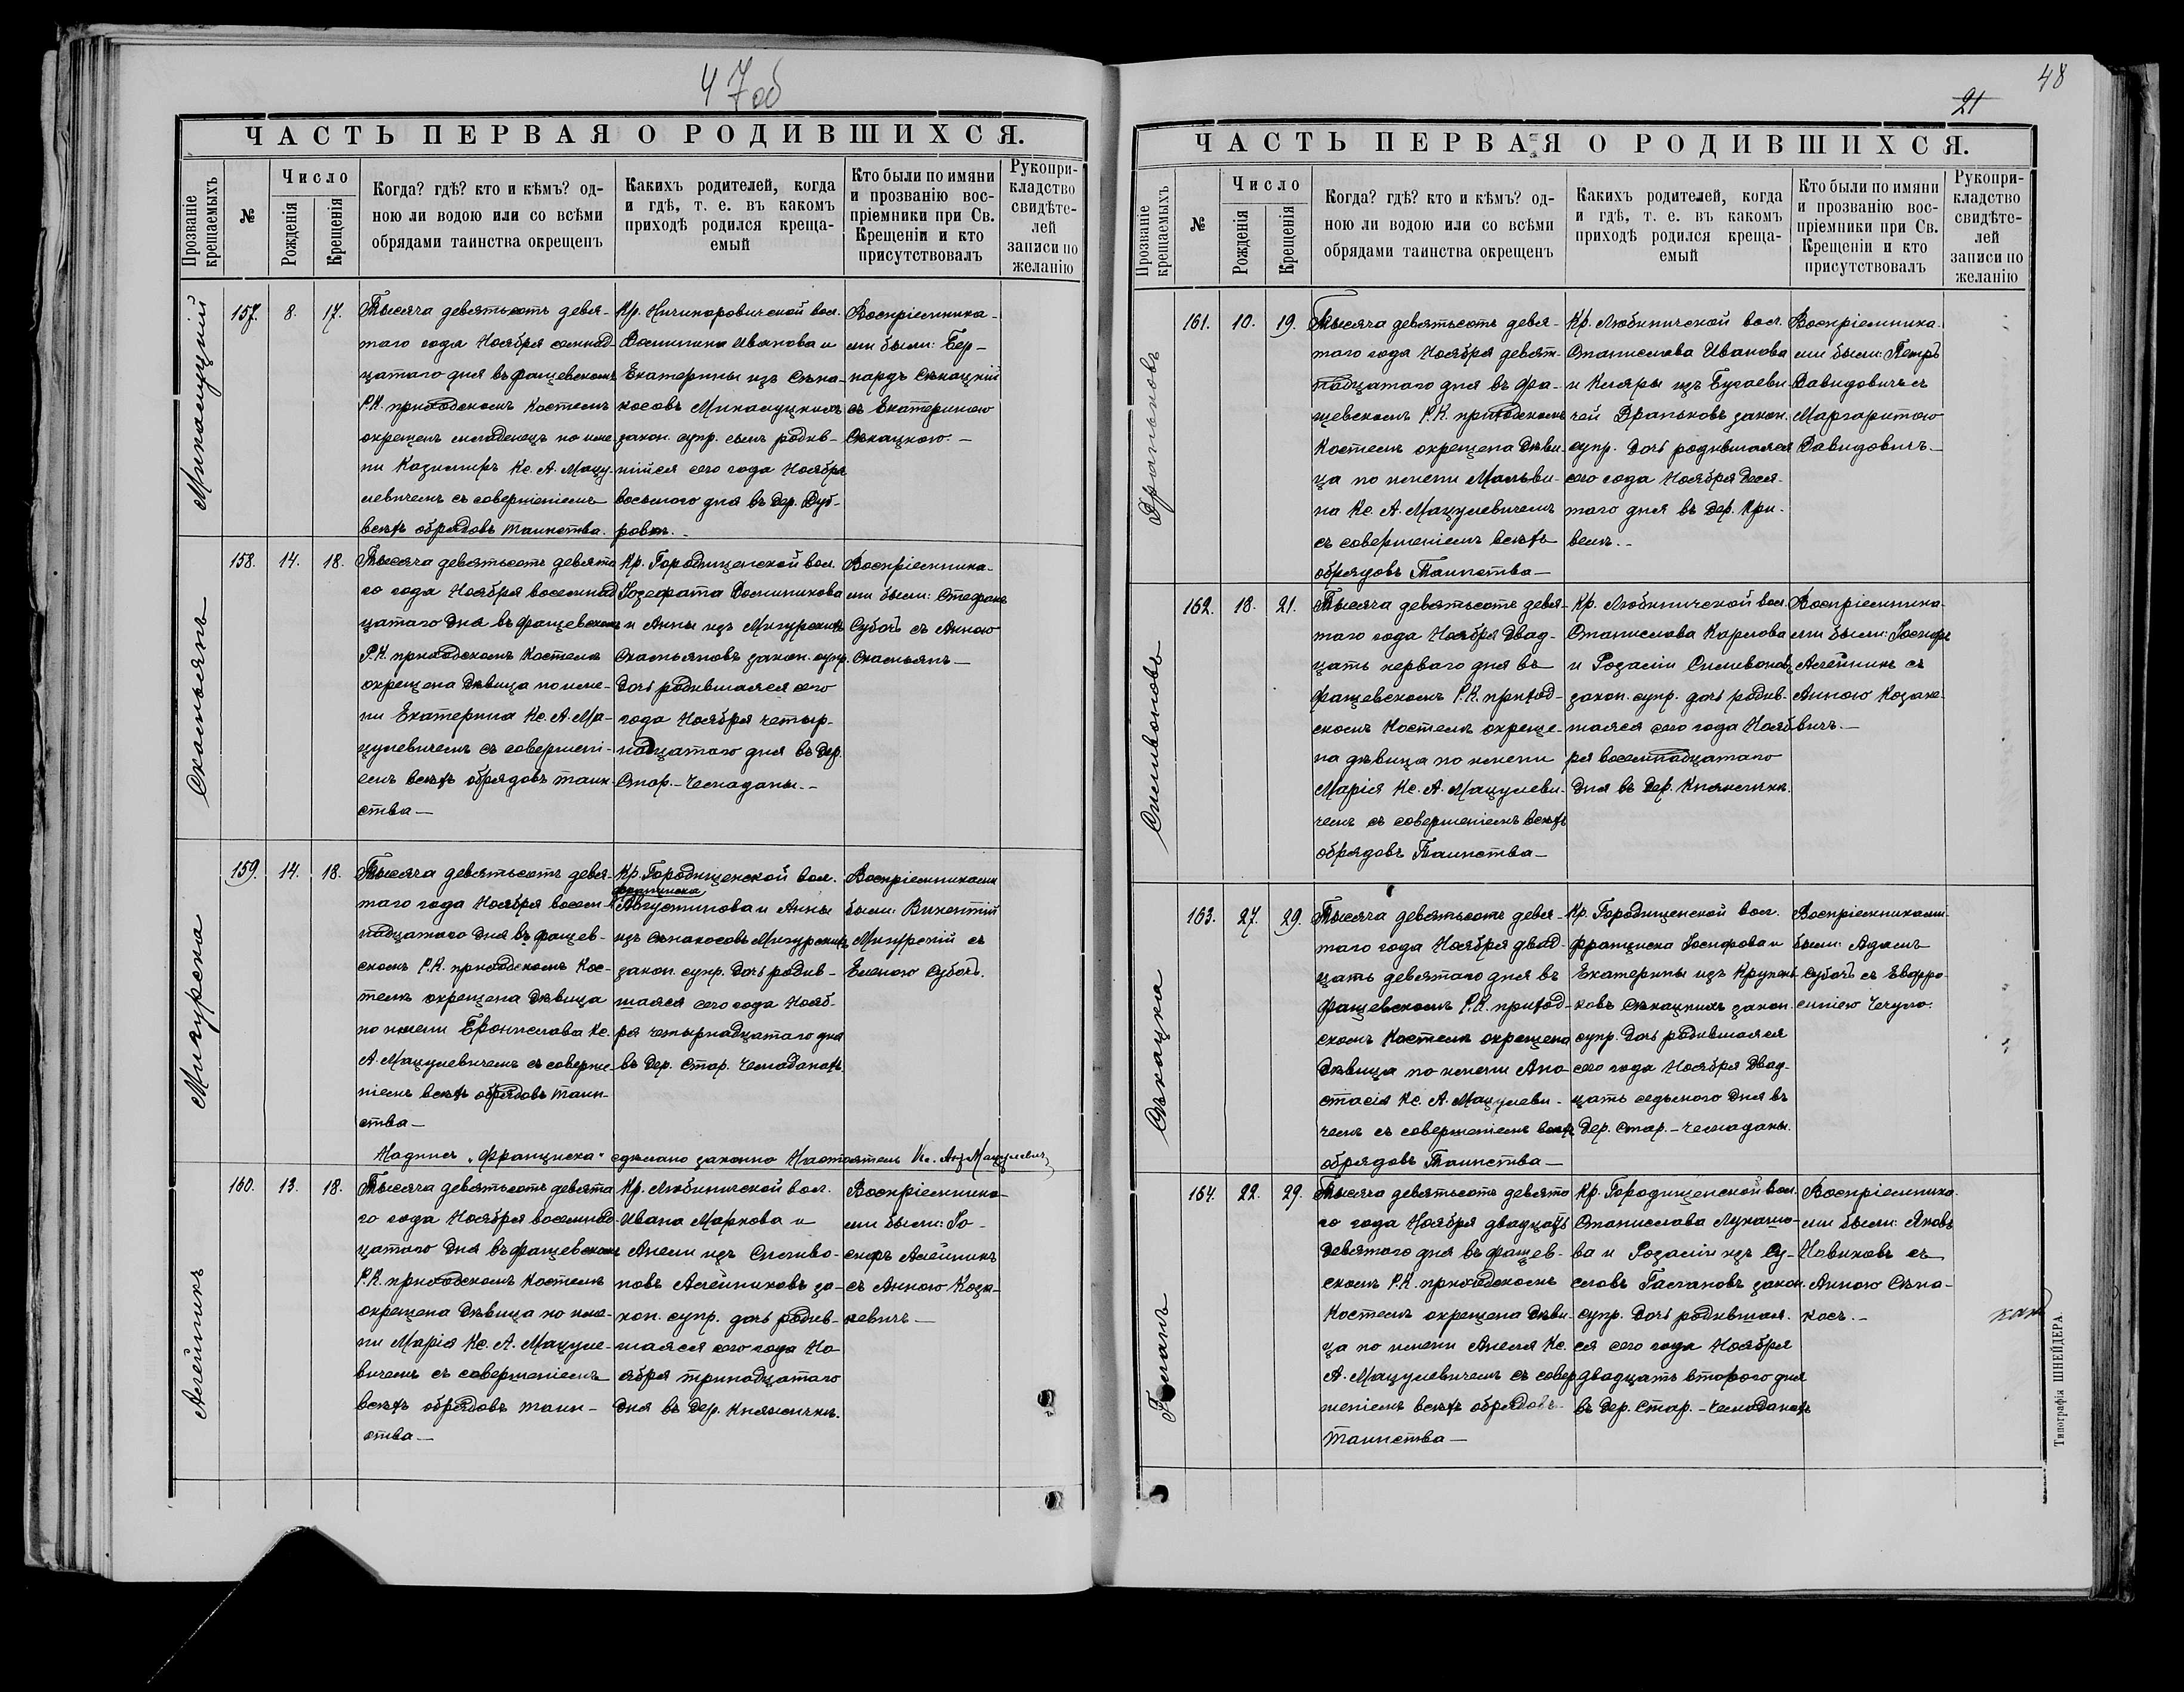 47об
ЧАСТЬ ПЕРВАЯ О РОДИВШИХСЯ.
Прозваніе крещаемыхъ
№
Число
Рожденія
Крещенія
Когда? гдѣ? кто и кѣмъ? од-
ною ли водою или со всѣми
обрядами таинства окрещенъ
Какихъ родителей, когда
и гдѣ, т. е. въ какомъ
приходѣ родился креща-
емый
Кто были по имяни
и прозванію вос-
пріемники при Св.
Крещеніи и кто
присутствовалъ
Рукопри-
кладство
свидѣте-
лей
записи по
желанію
157. 8. 17.
Тысяча девятьсотъ девя-
таго года Ноября семнад-
цатаго дня въ Фащевскомъ
Р.К. приходскомъ Костелѣ
окрещенъ младенецъ по име-
ни Казимиръ Кс. А. Мацу-
левичемъ съ совершеніемъ
всѣхъ обрядовъ таинства.
Кр. Ничипоровичской вол.
Доминика Иванова и
Екатерины изъ Сѣна-
косовъ
закон. супр. сынъ родив-
шійся сего года Ноября
восьмого дня въ дер. Дуб-
ровкѣ.
Воспріемника-
ми были: Бер-
нардъ Сѣкацкій
съ Екатериною
Сѣкацкою.—
158. 14. 18.
Скомьянъ
Тысяча девятьсотъ девята
го года Ноября восемнад
цатаго дня въ Фащевскомъ
Р.К. приходскомъ Костелѣ
окрещена дѣвица по име-
ни Екатерина Кс. А. Ма-
цулевичемъ съ совершені-
емъ всѣхъ обрядовъ таин-
ства—
Кр. Городищенской вол.
Іозефата Доминикова
и Анны изъ Мигурскихъ
Скомьяновъ закон. супр.
дочь родившаяся сего
года Ноября четыр-
надцатаго дня въ дер.
Стар.-Чемоданы.-
Воспріемника-
ми были: Стефанъ
Суботь съ Анною
Скомьянъ—
159. 14. 18.
Мигурска
Тысяча девятьсотъ девя-
таго года Ноября восем-
надцатаго дня въ Фащев-
скомъ Р.К. приходскомъ Кос-
телѣ окрещена дѣвица
по имени Бронислава Кс.
А. Мацулевичемъ съ соверше-
ніемъ всѣхъ обрядовъ таин-
ства—
Кр. Городищенской вол.
Франциска
Августинова и Анны
изъ Сѣнакосовъ Мигурскихъ
закон. супр. дочь родив-
шаяся сего года Нояб-
ря четырнадцатаго дня
въ дер. Стар. Чемоданахъ
Воспріемниками
были: Викентій
Мигурскій съ
Еленою Суботь.
Надпись „Франциска" сдѣлано законно Настоятель Кс. Анд. Мацулевичъ
160. 13. 18.
Алейникъ
Тысяча девятьсотъ девята
го года Ноября восемнад-
цатаго дня въ Фащевскомъ
Р.К. приходскомъ Костелѣ
окрещена дѣвица по име-
ни Марія Кс. А. Мацуле-
вичемъ съ совершеніемъ
всѣхъ обрядовъ таин-
ства—
Кр. Любиничской вол.
Ивана Маркова и
Анели изъ Силиво-
новъ Алейниковъ за-
кон. супр. дочь родив-
шаяся сего года Но-
ября тринадцатаго
дня въ дер. Княжичи.
Воспріемника-
ми были: Іо-
сифъ Алейникъ
съ Анною Коза-
кевичъ—
48
21
ЧАСТЬ ПЕРВАЯ О РОДИВШИХСЯ.
Прозваніе крещаемыхъ
№
Число
Рожденія
Крещенія
Когда? гдѣ? кто и кѣмъ? од-
ною ли водою или со всѣми
обрядами таинства окрещенъ
Какихъ родителей, когда
и гдѣ, т. е. въ какомъ
приходѣ родился креща-
емый
Кто были по имяни
и прозванію вос-
пріемники при Св.
Крещеніи и кто
присутствовалъ
Рукопри-
кладство
свидѣте-
лей
записи по
желанію
161. 10. 19.
Драпьковъ
Тысяча девятьсотъ девя-
таго года Ноября девят-
надцатаго дня въ Фа-
щевскомъ Р.К. приходскомъ
Костелѣ окрещена дѣви-
ца по имени Мальви-
на Кс. А. Мацулевичемъ
съ совершеніемъ всѣхъ
обрядовъ Таинства—
Кр. Любиничской вол.
Станислава Иванова
и Кляры изъ Бугаеви-
чей Драпьковъ закон.
супр. дочь родившаяся
сего года Ноября деся-
таго дня въ дер. Кри-
вель.-
Воспріемника-
ми были: Петръ
Давидовичъ съ
Маргаритою
Давидовичъ.—
162. 18. 21.
Силивоновъ
Тысяча девятьсотъ девя-
таго года Ноября двад-
цать перваго дня въ
Фащевскомъ Р.К. приход-
скомъ Костелѣ окреще-
на дѣвица по имени
Марія Кс. А. Мацулеви-
чемъ съ совершеніемъ всѣхъ
обрядовъ Таинства—
Кр. Любиничской вол.
Станислава Карлова
и Розаліи Силивоновъ
закон. супр. дочь родив-
шаяся сего года Нояб-
ря восемнадцатаго
дня въ дер. Княжичи.
Воспріемника-
ми были: Іосифъ
Алейникъ съ
Анною Козаке-
вичъ.—
163. 27. 29.
Сѣкацка
Тысяча девятьсотъ девя-
таго года Ноября двад-
цать девятаго дня въ
Фащевскомъ Р.К. приход-
скомъ Костелѣ окрещена
дѣвица по имени Ана-
стасія Кс. А. Мацулеви-
чемъ съ совершеніемъ всѣхъ
обрядовъ Таинства—
Кр. Городищенской вол.
Франциска Іосифова и
Екатерины изъ Крупень-
ковъ Сѣкацкихъ закон.
супр. дочь родившаяся
сего года Ноября двад-
цать седьмого дня въ
дер. Стар.-Чемоданы.
Воспріемниками
были: Адамъ
Суботь съ Евфро-
синіею Чечуло.
164. 22. 29.
Тысяча девятьсотъ девята
го года Ноября двадцать
девятаго дня въ Фащев-
скомъ Р.К. приходскомъ
Костелѣ окрещена дѣви-
ца по имени Анеля Кс.
А. Мацулевичемъ съ совер
шеніемъ всѣхъ обрядовъ
Таинства—
Кр. Городищенской вол.
Станислава Лукашо-
ва и Розаліи изъ Су-
закон.
супр. дочь родившая-
ся сего года Ноября
двадцать второго дня
въ дер. Стар.-Чемоданахъ
Воспріемника-
ми были: Яковъ
Новиковъ съ
Анною Сѣна-
косъ.—
Типографія ШНЕЙДЕРА